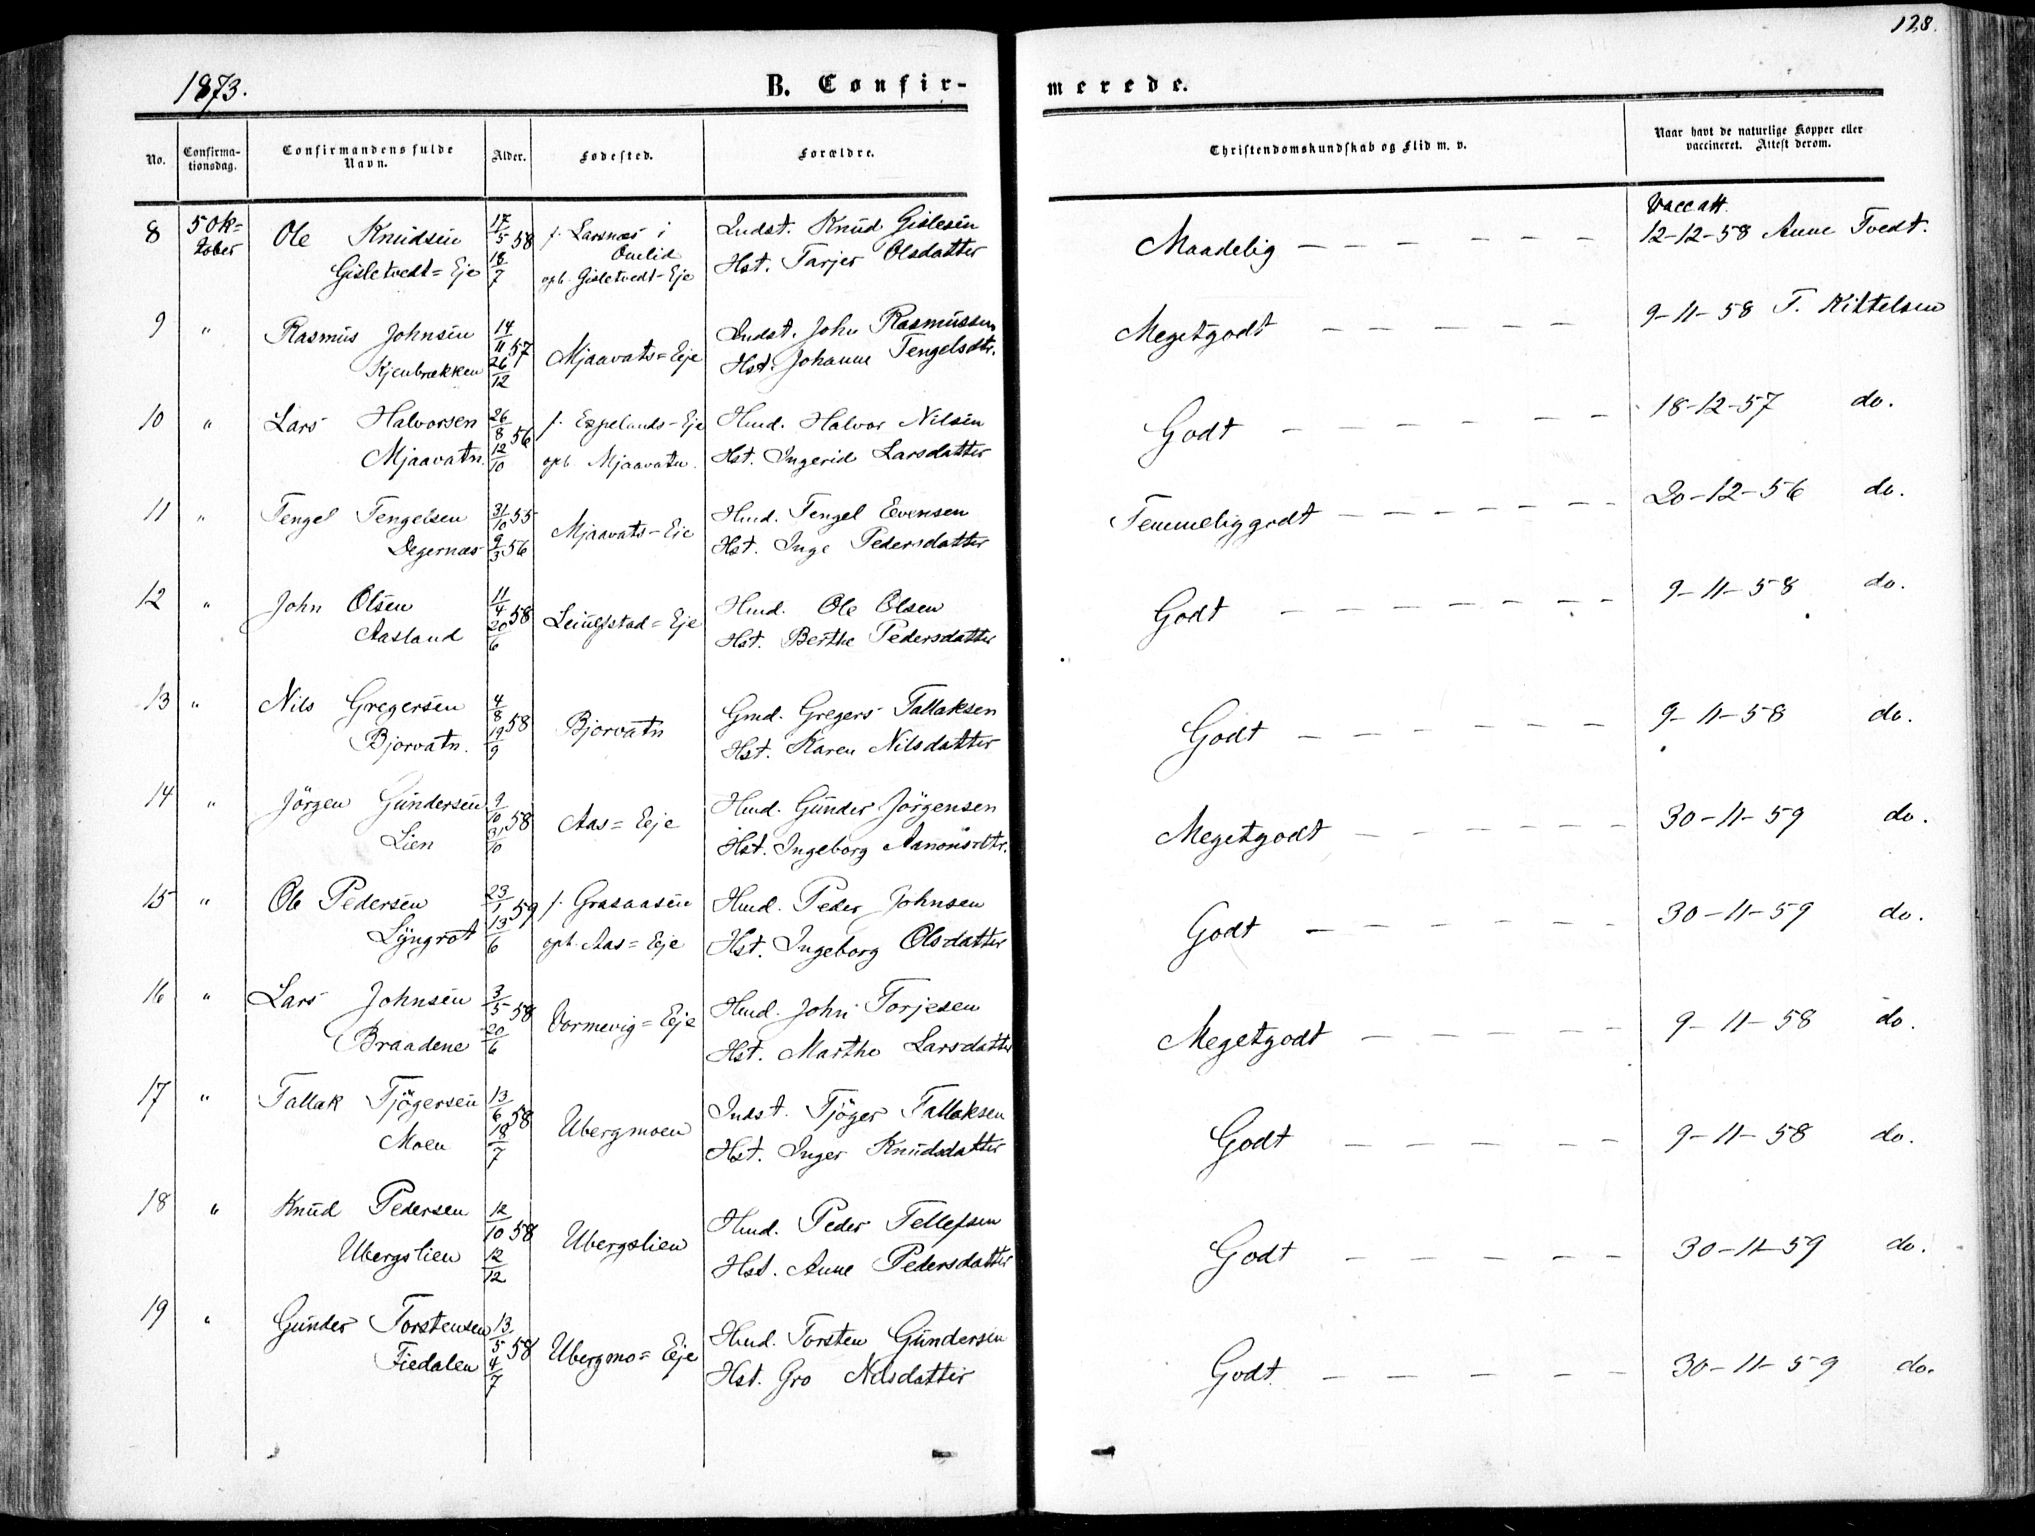 128.
1873.
B. Confir-
merede.
No.
Confirma-
tionsdag.
Confirmandens fulde
Navn.
Alder.
Fødested.
Forældre.
Christendomskundskab og Flid m. v.
Naar havt de naturlige Kopper eller
vaccineret. Attest derom.
8 5 Ok= Ole Knudsen 17/5 58 f. Larsnæs i Indst. Knud Gislesen Maadelig Vaccatt.
tober Gisletvedt=Eje 18/7 Omlid Hst. Tarjer Olsdatter 12-12-58 Anne Tvedt.
opb. Gisletvedt-Eje
9 " Rasmus Johnsen 14/11 57 Mjaavats=Eje Indst. John Rasmussen Megetgodt 9-11-58 T. Kittelsen
Kjenbrækken 26/12 Hst. Johanne Tengelsdtr.
10 " Lars Halvorsen 26/8 56 f. Espelands-Eje Hmd. Halvor Nilsen Godt 18-12-57 do.
Mjaavatn. 12/10 opb. Mjaavatn. Hst. Ingerid Larsdatter
11 " Tengel Tengelsen 31/10 55 Mjaavats-Eje Hmd. Tengel Evensen Temmeliggodt 20-12-56 do.
Degernæs 9/3 56 Hst. Inge Pedersdatter
12 " John Olsen 11/4 58 Hmd. Ole Olsen Godt 9-11-58 do.
Aasland 20/6 Hst. Berthe Pedersdatter
13 " Nils Gregersen 4/8 58 Bjorvatn Gmd. Gregers Tallaksen Godt 9-11-58 do.
Bjorvatn. 19/9 Hst. Karen Nilsdatter
14 " Jörgen Gundersen 9/10 58 Aas=Eje Hmd. Gunder Jörgensen Megetgodt 30-11-59 do.
Lien 31/10 Hst. Ingeborg Aanonsdtr.
15 " Ole Pedersen 23/1 59 f. Grasaasen Hmd. Peder Johnsen Godt 30-11-59 do.
Lyngrot 13/6 opb. Aas=Eje Hst. Ingeborg Olsdatter
16 " Lars Johnsen 3/5 58 Vormevig=Eje Hmd. John Torjesen Megetgodt 9-11-58 do.
Braadene 20/6 Hst. Marthe Larsdatter
17 " Tallak Tjögersen 13/6 58 Ubergmoen Indst. Tjöger Tallaksen Godt 9-11-58 do.
Moen 18/7 Hst. Inger Knudsdatter
18 " Knud Pedersen 12/10 58 Ubergslien Hmd. Peder Tellefsen Godt 30-11-59 do.
Ubergslien 12/12 Hst. Anne Pedersdatter
19 " Gunder Torstensen 13/5 58 Ubergmo=Eje Hmd. Torsten Gundersen Godt 30-11-59 do.
Fiedalen 4/7 Hst. Gro Nilsdatter